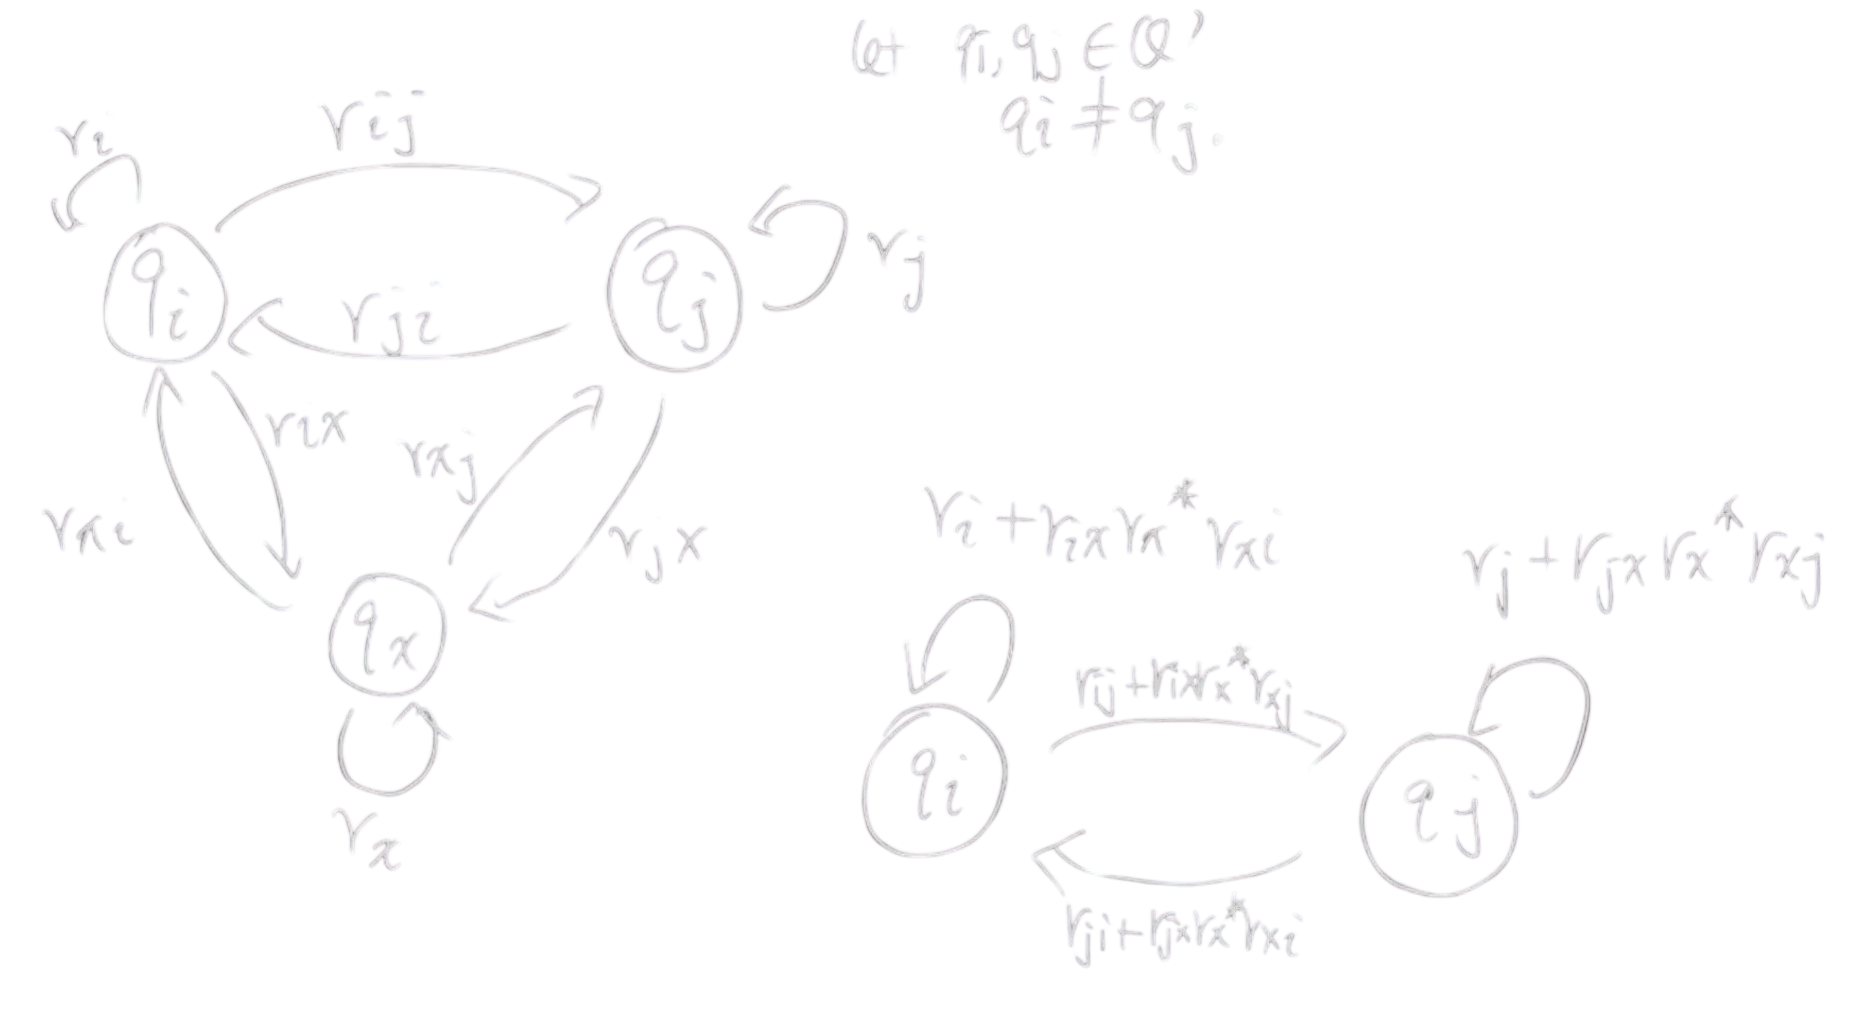 let qi, qj ∈ Q'
qi ≠ qj.
ri
rij
qi
qj
rj
rji
rix
rxj
rxi
rjx
qx
rx
ri + rix rx* rxi
rj + rjx rx* rxj
rij + rix rx* rxj
qi
qj
rji + rjx rx* rxi